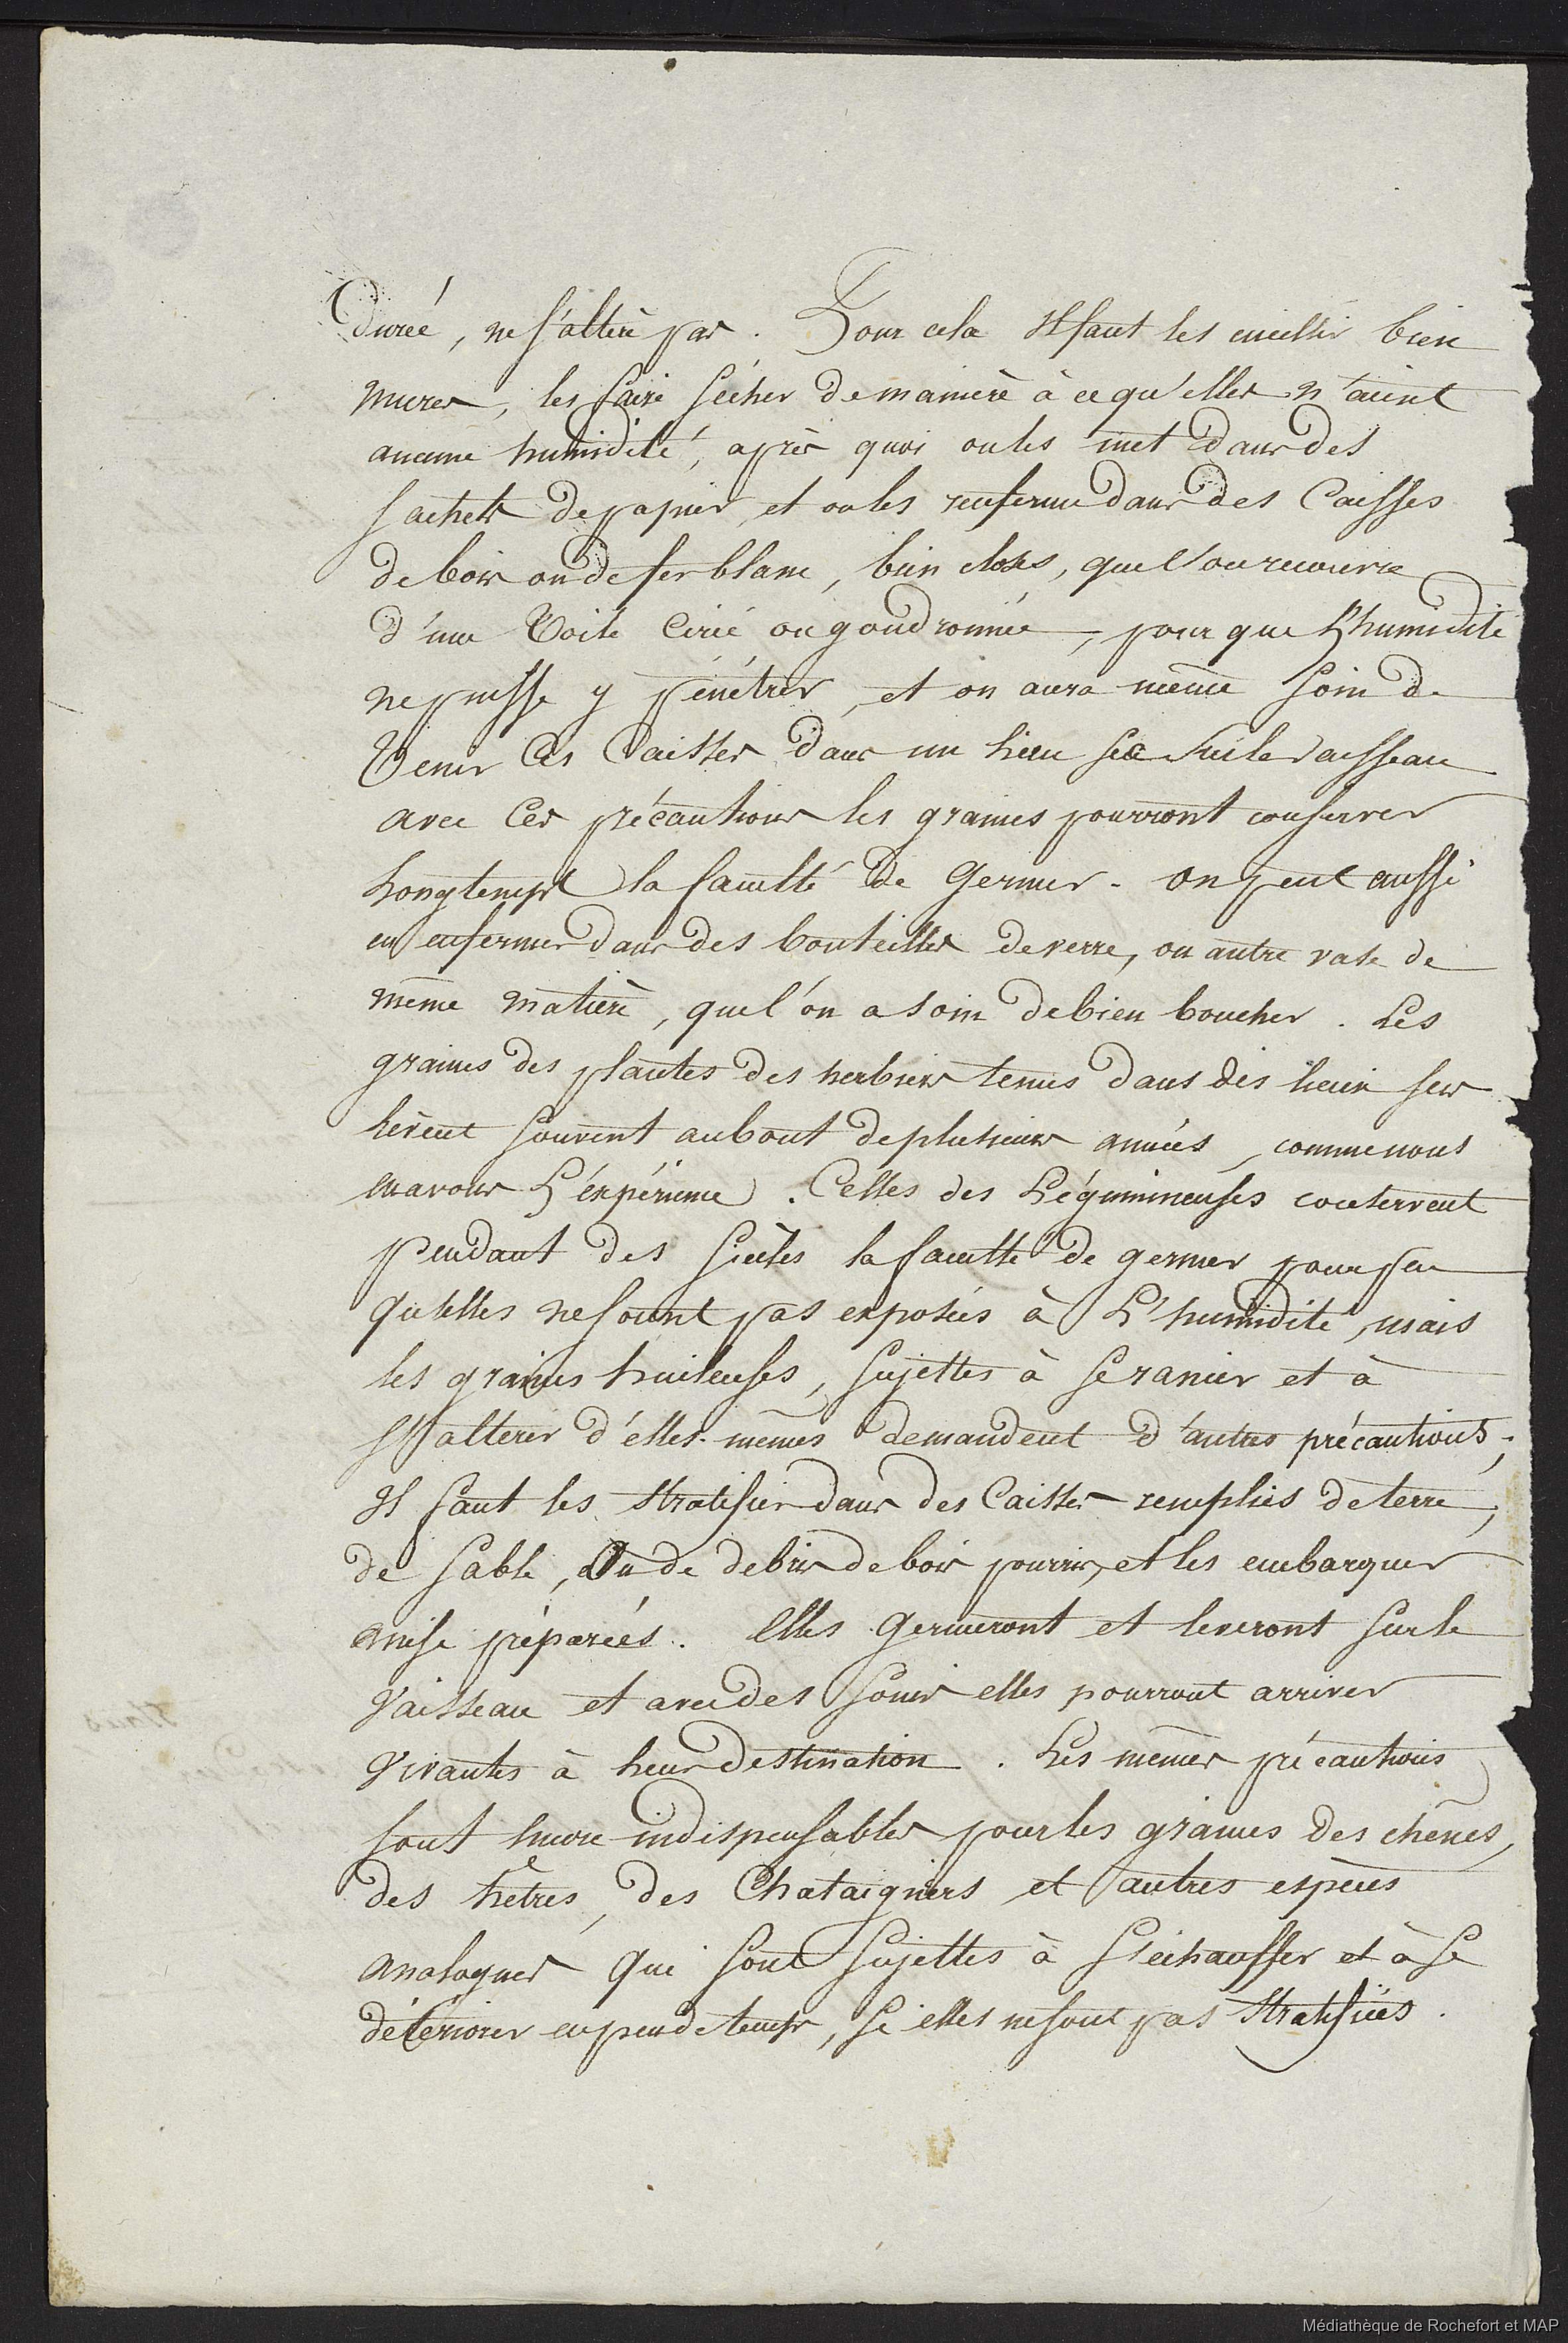 durée, ne s'altère pas. Pour cela Il faut les cueillir bien
mures, les faire sécher de manière à ce qu'elles n'aient
aucune humidité, après quoi on les met dans des
sachets de papier, et on les renferme dans des Caisses
de bois ou de fer blanc, bien closes, que l'on recouvre
d'une Toile Cirée ou goudronnée, pour que L'humidité
ne puisse y pénétrer, et on aura même soin de
Tenir Ces Caisses dans un lieu sec sur le vaisseau
avec Ces précautions les graines pourront conserver
Longtemps la faculté de Germer. on peut aussi
en enfermer dans des bouteilles de verre, ou autre vase de
même matière, que l'on a soin de bien boucher. Les
graines des plantes des herbiers tenus dans des lieux secs
lèvent souvent au bout de plusieurs années, comme nous
en avons L'éxpérience. Celles des Légumineuses conservent
pendant des siècles la faculté de germer pour peu
qu'elles ne soient pas exposées à L'humidité, mais
les graines huileuses, sujettes à se rancir et à
s'alterer d'elles-mêmes demandent d'autres précautions;
Il faut les stratifier dans des Caisses remplies de terre,
de sable, Ou de debris de bois pourris, et les embarquer
ainsi préparées. Elles Germeront et leveront sur le
Vaisseau et avec des soins elles pourront arriver
Vivantes à leur destination. Les mêmes précautions
sont encore indispensables pour les graines des chênes,
des hêtres, des Chataigniers et autres espèces
analogues qui sont sujettes à s'échauffer et à se
détériorer en peu de temps, si elles ne sont pas stratifiées.
Médiathèque de Rochefort et MAP